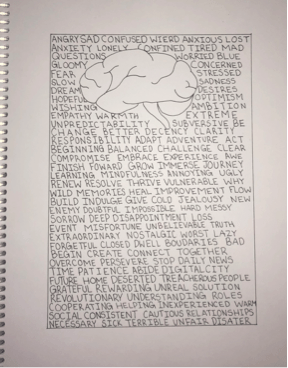 ANGRY SAD CONFUSED WIERD ANXIOUS LOST
ANXIETY LONELY CONFINED TIRED MAD
QUESTIONS WORRIED BLUE
GLOOMY CONCERNED
FEAR STRESSED
SLOW SADNESS
DREAM DESIRES
HOPEFUL OPTIMISM
WISHING AMBITION
EMPATHY WARMTH EXTREME
UNPREDICTABILITY SUBVERSIVE BE
CHANGE BETTER DECENCY CLARITY
RESPONSIBILITY ADAPT ADVENTURE ACT
BEGINNING BALANCED CHALLENGE CLEAR
COMPROMISE EMBRACE EXPERIENCE AWE
FINISH FOWARD GROW IMMERSE JOURNEY
LEARNING MINDFULNESS ANNOYING UGLY
RENEW RESOLVE THRIVE VULNERABLE WHY
WILD MEMORIES HEAL IMPROVEMENT FLOW
BUILD INDULGE GIVE COLD JEALOUSY NEW
ENEMY DOUBTFUL IMPOSSIBLE HARD MESSY
SORROW DEEP DISAPPOINTMENT LOSS
EVENT MISFORTUNE UNBELIEVABLE TRUTH
EXTRAORDINARY NOSTALGIC WORST LAZY
FORGETFUL CLOSED DWELL BOUDARIES BAD
BEGIN CREATE CONNECT TOGETHER
OVERCOME PERSEVERE STOP DAILY NEWS
TIME PATIENCE ABIDE DIGITAL CITY
FUTURE HOME DESERTED TREACHEROUS PEOPLE
GRATEFUL REWARDING UNREAL SOLUTION
REVOLUTIONARY UNDERSTANDING ROLES
COOPERATING HELPING INEXPERIENCED WARM
SOCIAL CONSISTENT CAUTIOUS RELATIONSHIPS
NECESSARY SICK TERRIBLE UNFAIR DISATER